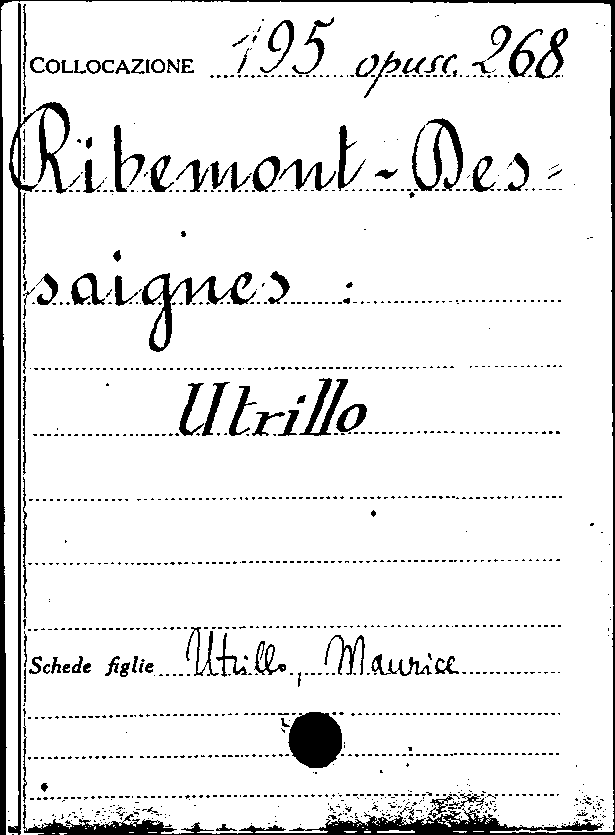 COLLOCAZIONE 195 opusc. 268
Ribemont-Des=
saignes :
Utrillo
Schede figlie Utrillo, Maurice